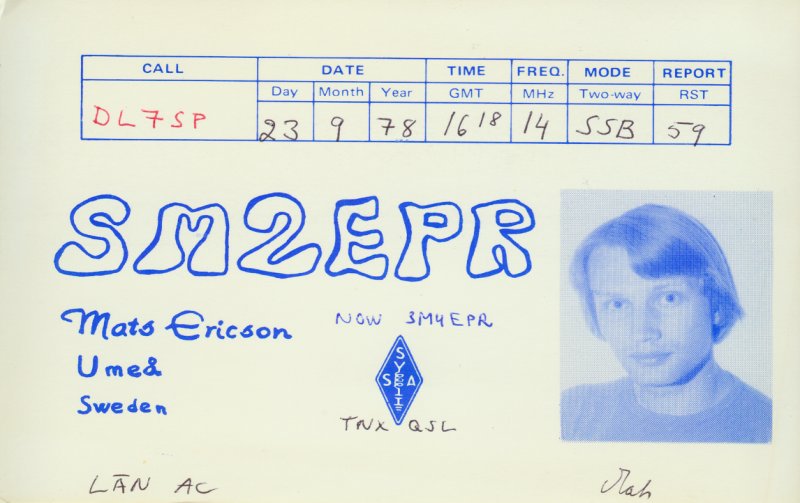 CALL DATE TIME FREQ. MODE REPORT
Day Month Year GMT MHz Two-way RST
DL7SP 23 9 78 16 18 14 SSB 59
SM2EPR
Mats Ericson
Umeå
Sweden
NOW SM4EPR
SSA
TNX QSL
LÄN AC
Mats